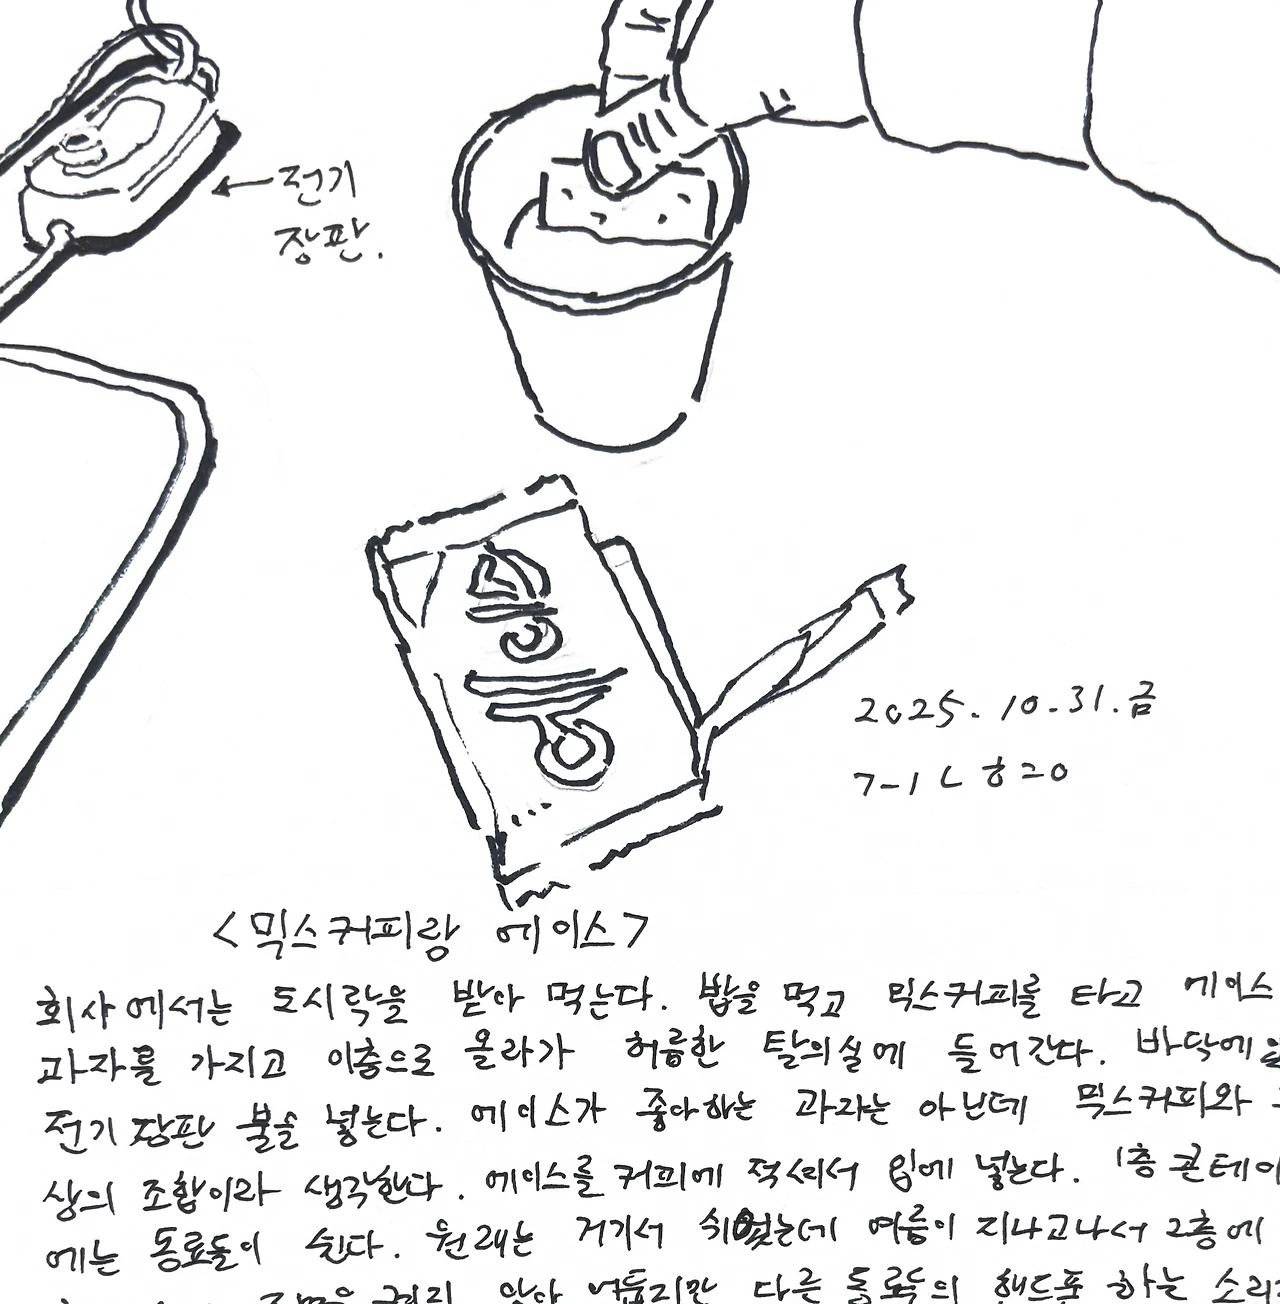 전기
장판.
2025. 10. 31. 금
<믹스커피랑 에이스>
회사에서는 도시락을 받아 먹는다. 밥을 먹고 믹스커피를 타고 에이스
과자를 가지고 이층으로 올라가 허름한 탈의실에 들어간다. 바닥에
전기장판 불을 넣는다. 에이스가 좋아하는 과자는 아닌데 믹스커피와
상의 조합이라 생각한다. 에이스를 커피에 적셔서 입에 넣는다. 1층 콘테이
에는 동료들이 쉰다. 원래는 거기서 쉬었는데 여름이 지나고나서 2층에
앉아 어둡지만 다른 동료들의 핸드폰 하는